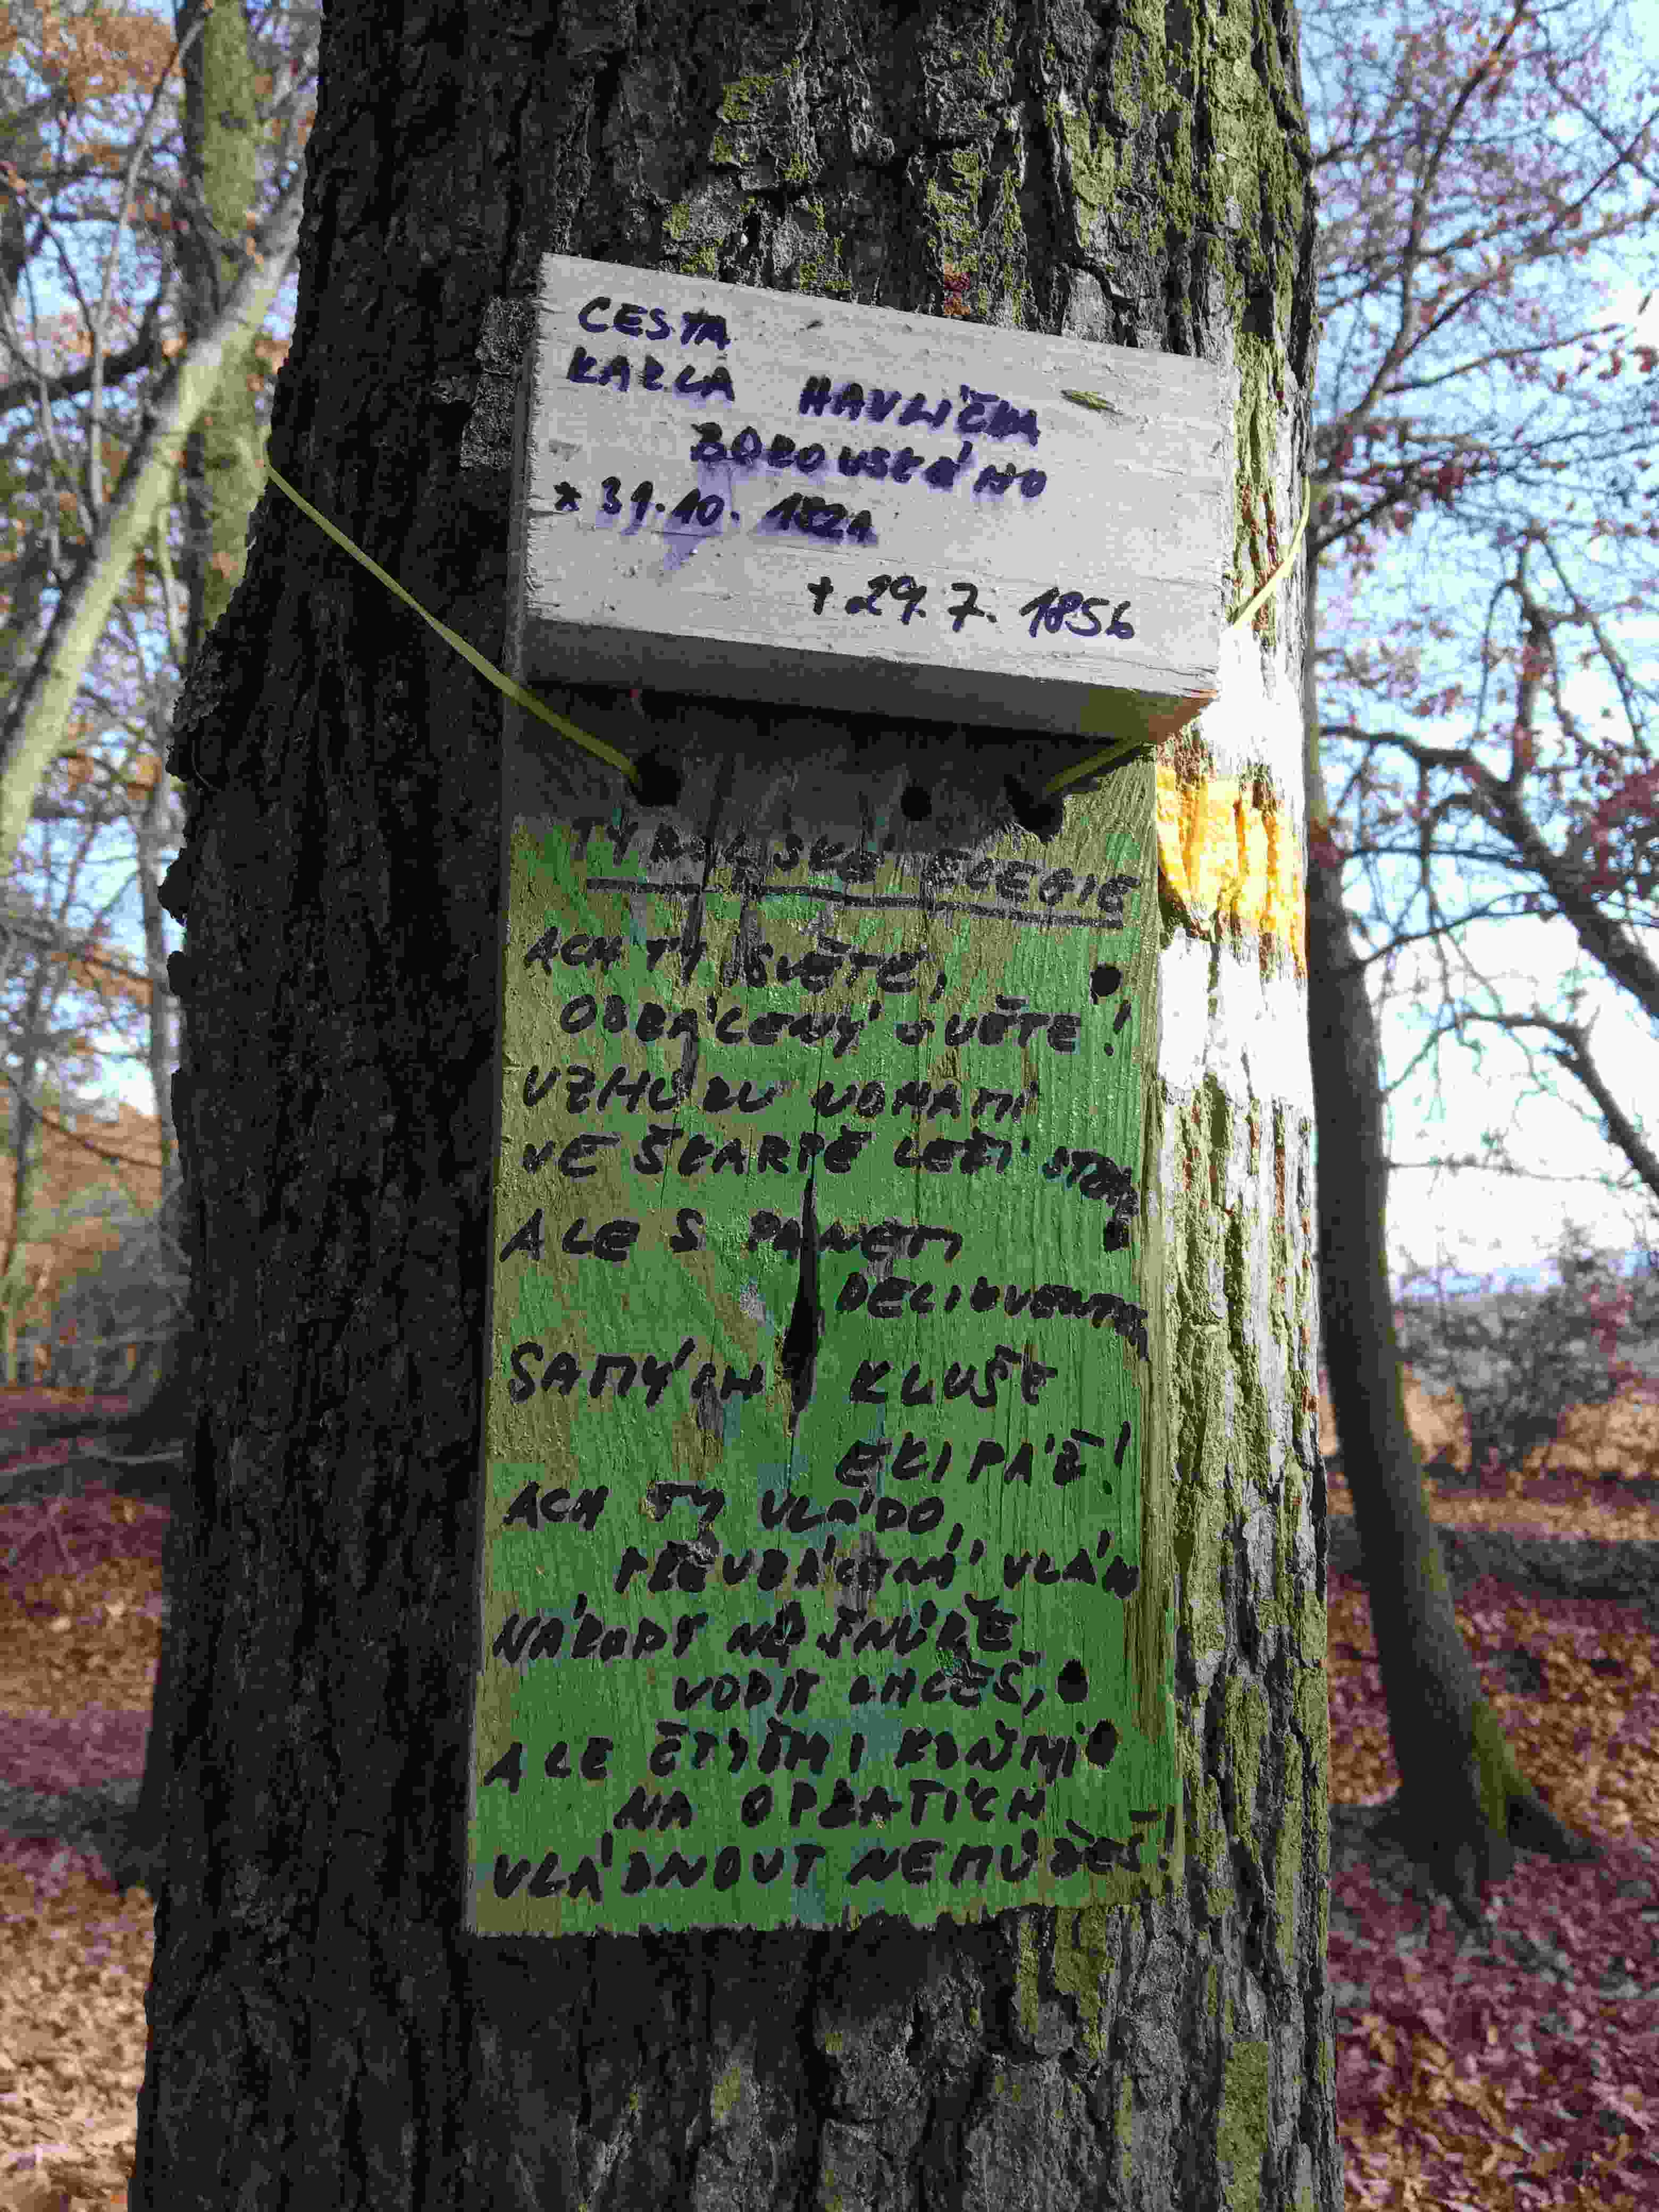 CESTA
KARLA HAVLÍČKA
BOROVSKÉHO
* 31.10. 1821
+ 29. 7. 1856
TYROLSKÉ ELEGIE
ACH TY SVĚTE,
OBRÁCENÝ SVĚTE!
VZHŮRU NOHAMI
VE ŠKARPĚ LEŽÍ
ALE S PÁNEM
DELIKVENTEM
SAMÝCH KLUŠE
EKIPÁŽ!
ACH TY VLÁDO,
PŘEVRÁCENÁ VLÁDO
NÁRODY NA ŠŇŮŘE
VODIT CHCEŠ,
ALE ČTYŘMI KOŇMI
NA OPRATÍCH
VLÁDNOUT NEMŮŽEŠ!